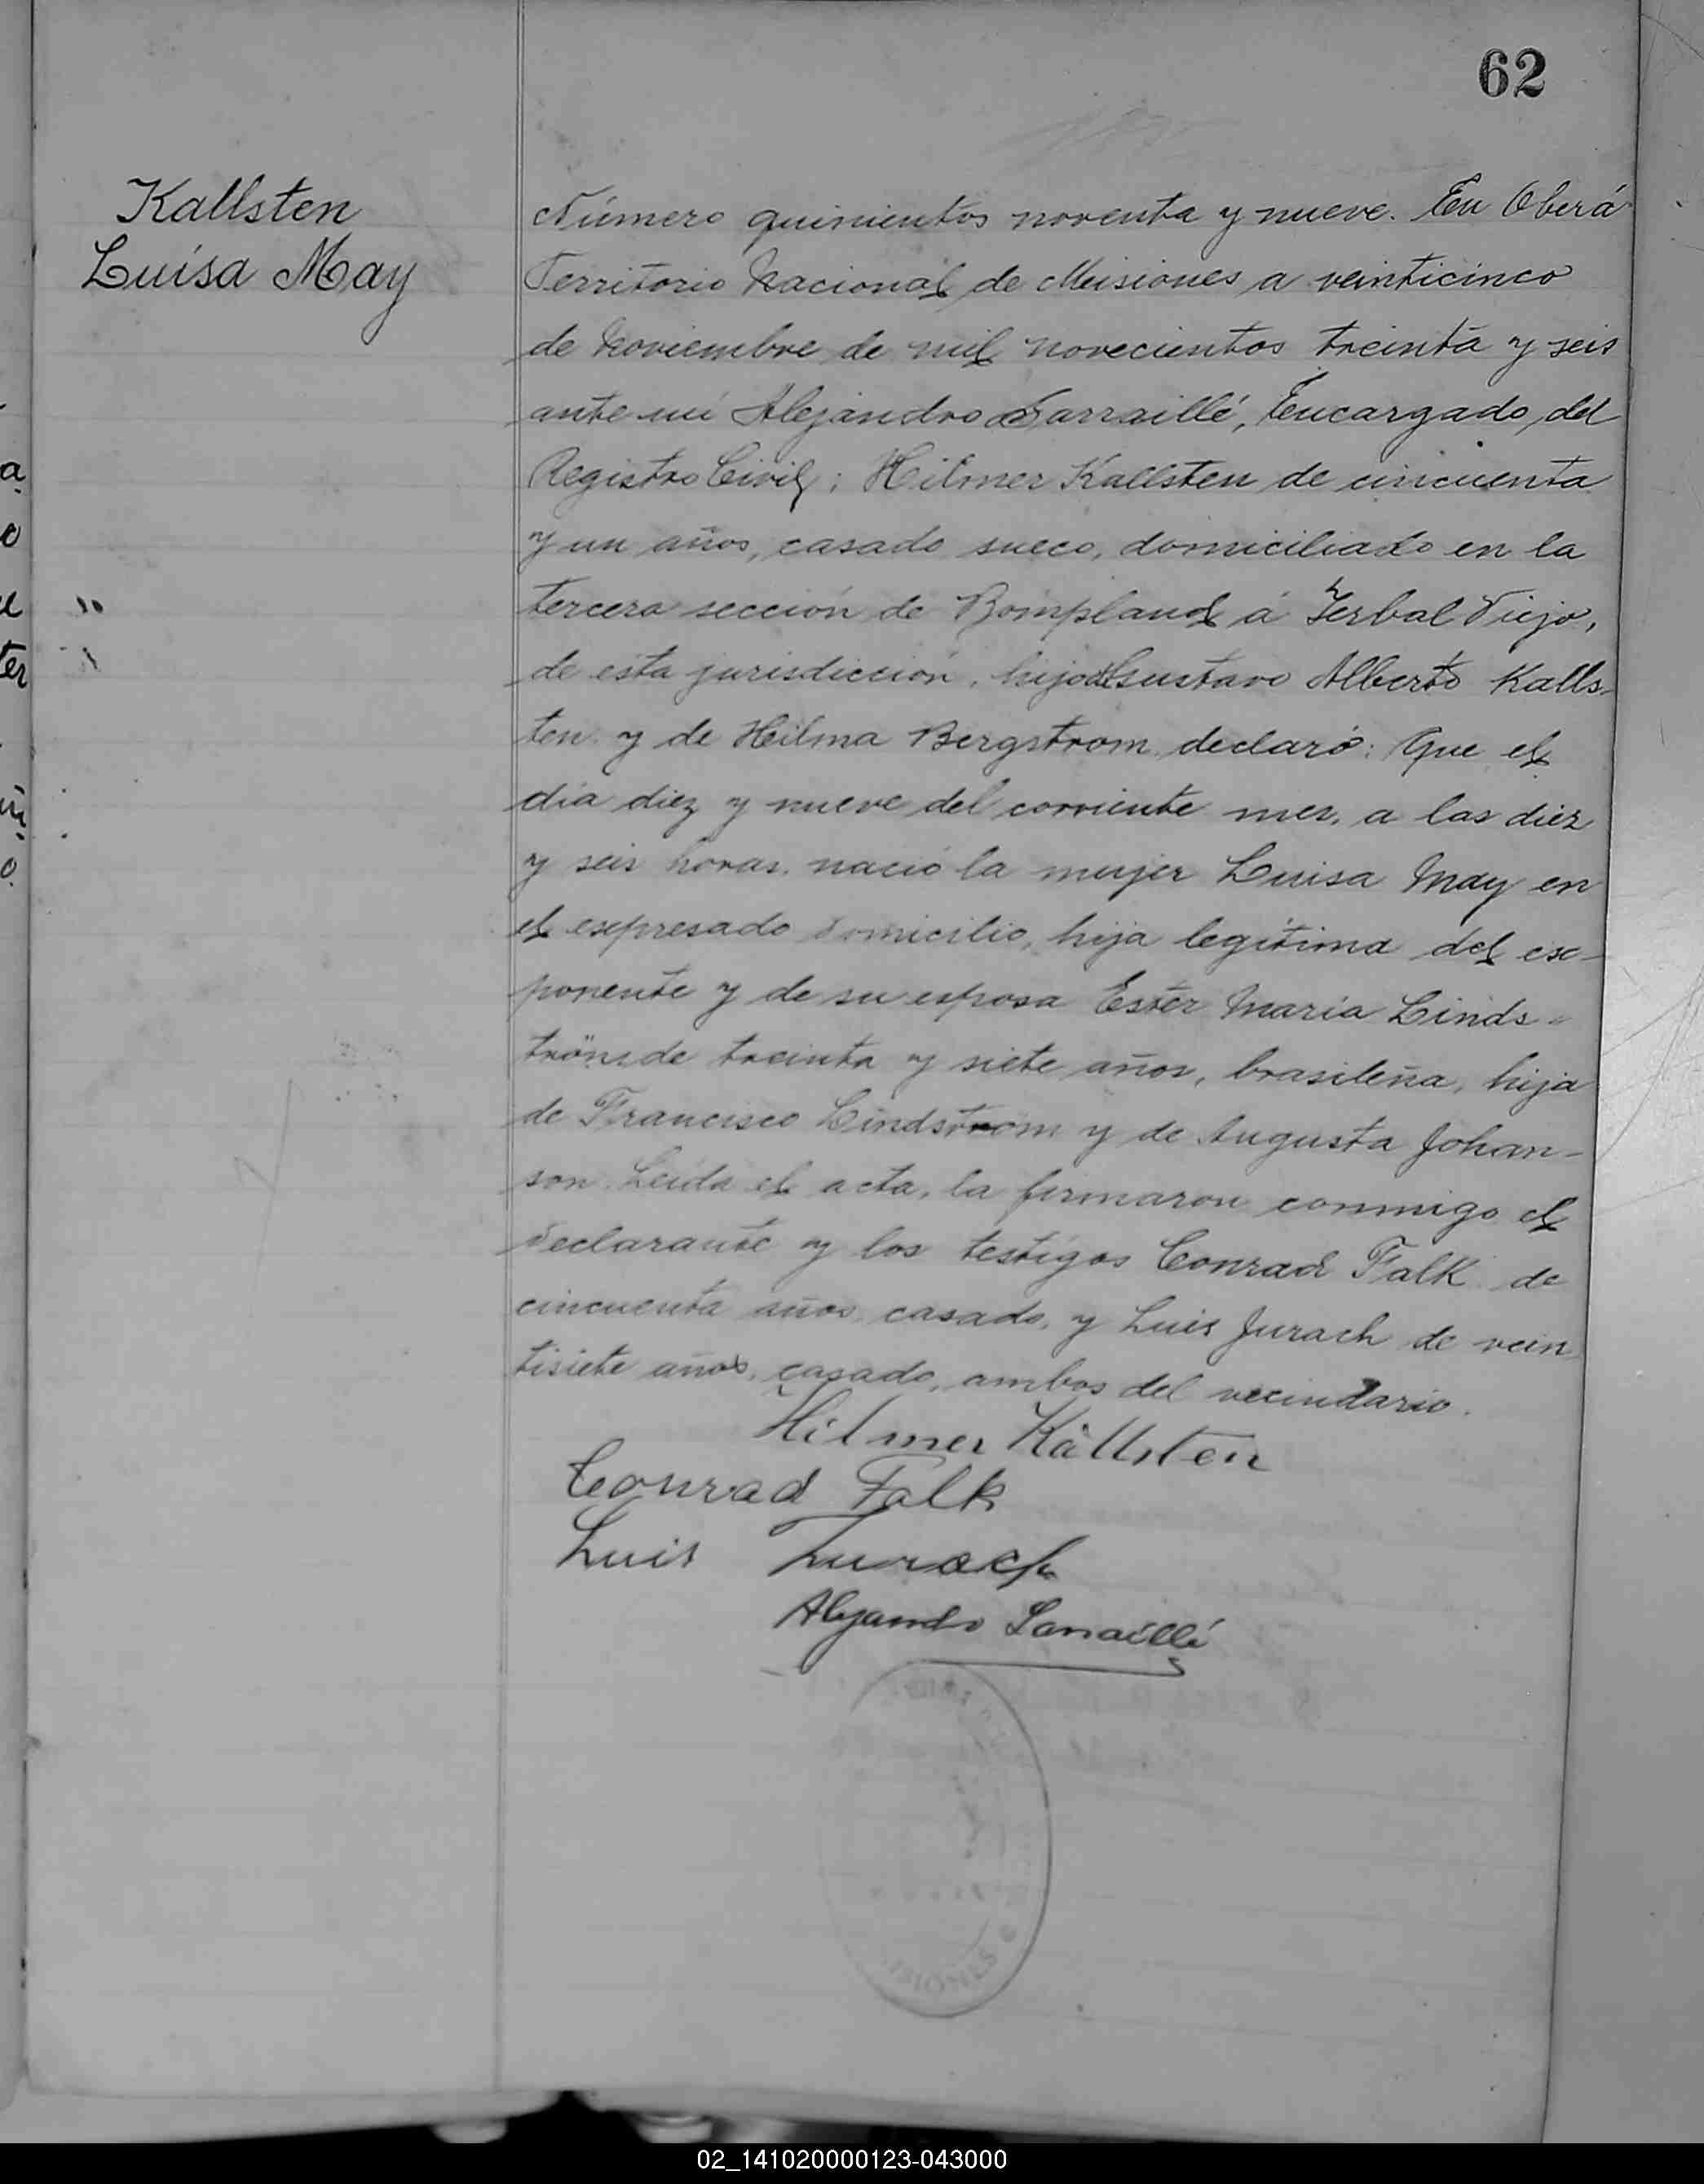 62
Kallsten
Luisa May
Número quinientos noventa y nueve. En Oberá
Territorio Nacional de Misiones a veinticinco
de Noviembre de mil novecientos treinta y seis
ante mí Alejandro Larraillé, Encargado del
Registro Civil; Hilmer Kallsten de cincuenta
y un años, casado sueco, domiciliado en la
tercera sección de Bompland á Yerbal Viejo,
de esta jurisdicción, hijo de Gustavo Alberto Kalls-
ten y de Hilma Bergstrom, declaró: Que el
día diez y nueve del corriente mes, a las diez
y seis horas, nació la mujer Luisa May en
el expresado domicilio, hija legítima del ex-
ponente y de su esposa Ester María Linds-
tröm de treinta y siete años, brasileña, hija
de Francisco Lindstrom y de Augusta Johan-
son. Leída el acta, la firmaron conmigo el
declarante y los testigos Conrad Falk de
cincuenta años casado, y Luis Jurach de vein
tisiete años, casado, ambos del vecindario.
Hilmer Källsten
Conrad Falk
Luis Jurach
Alejandro Larraillé
a
o
ter
o
02_141020000123-043000